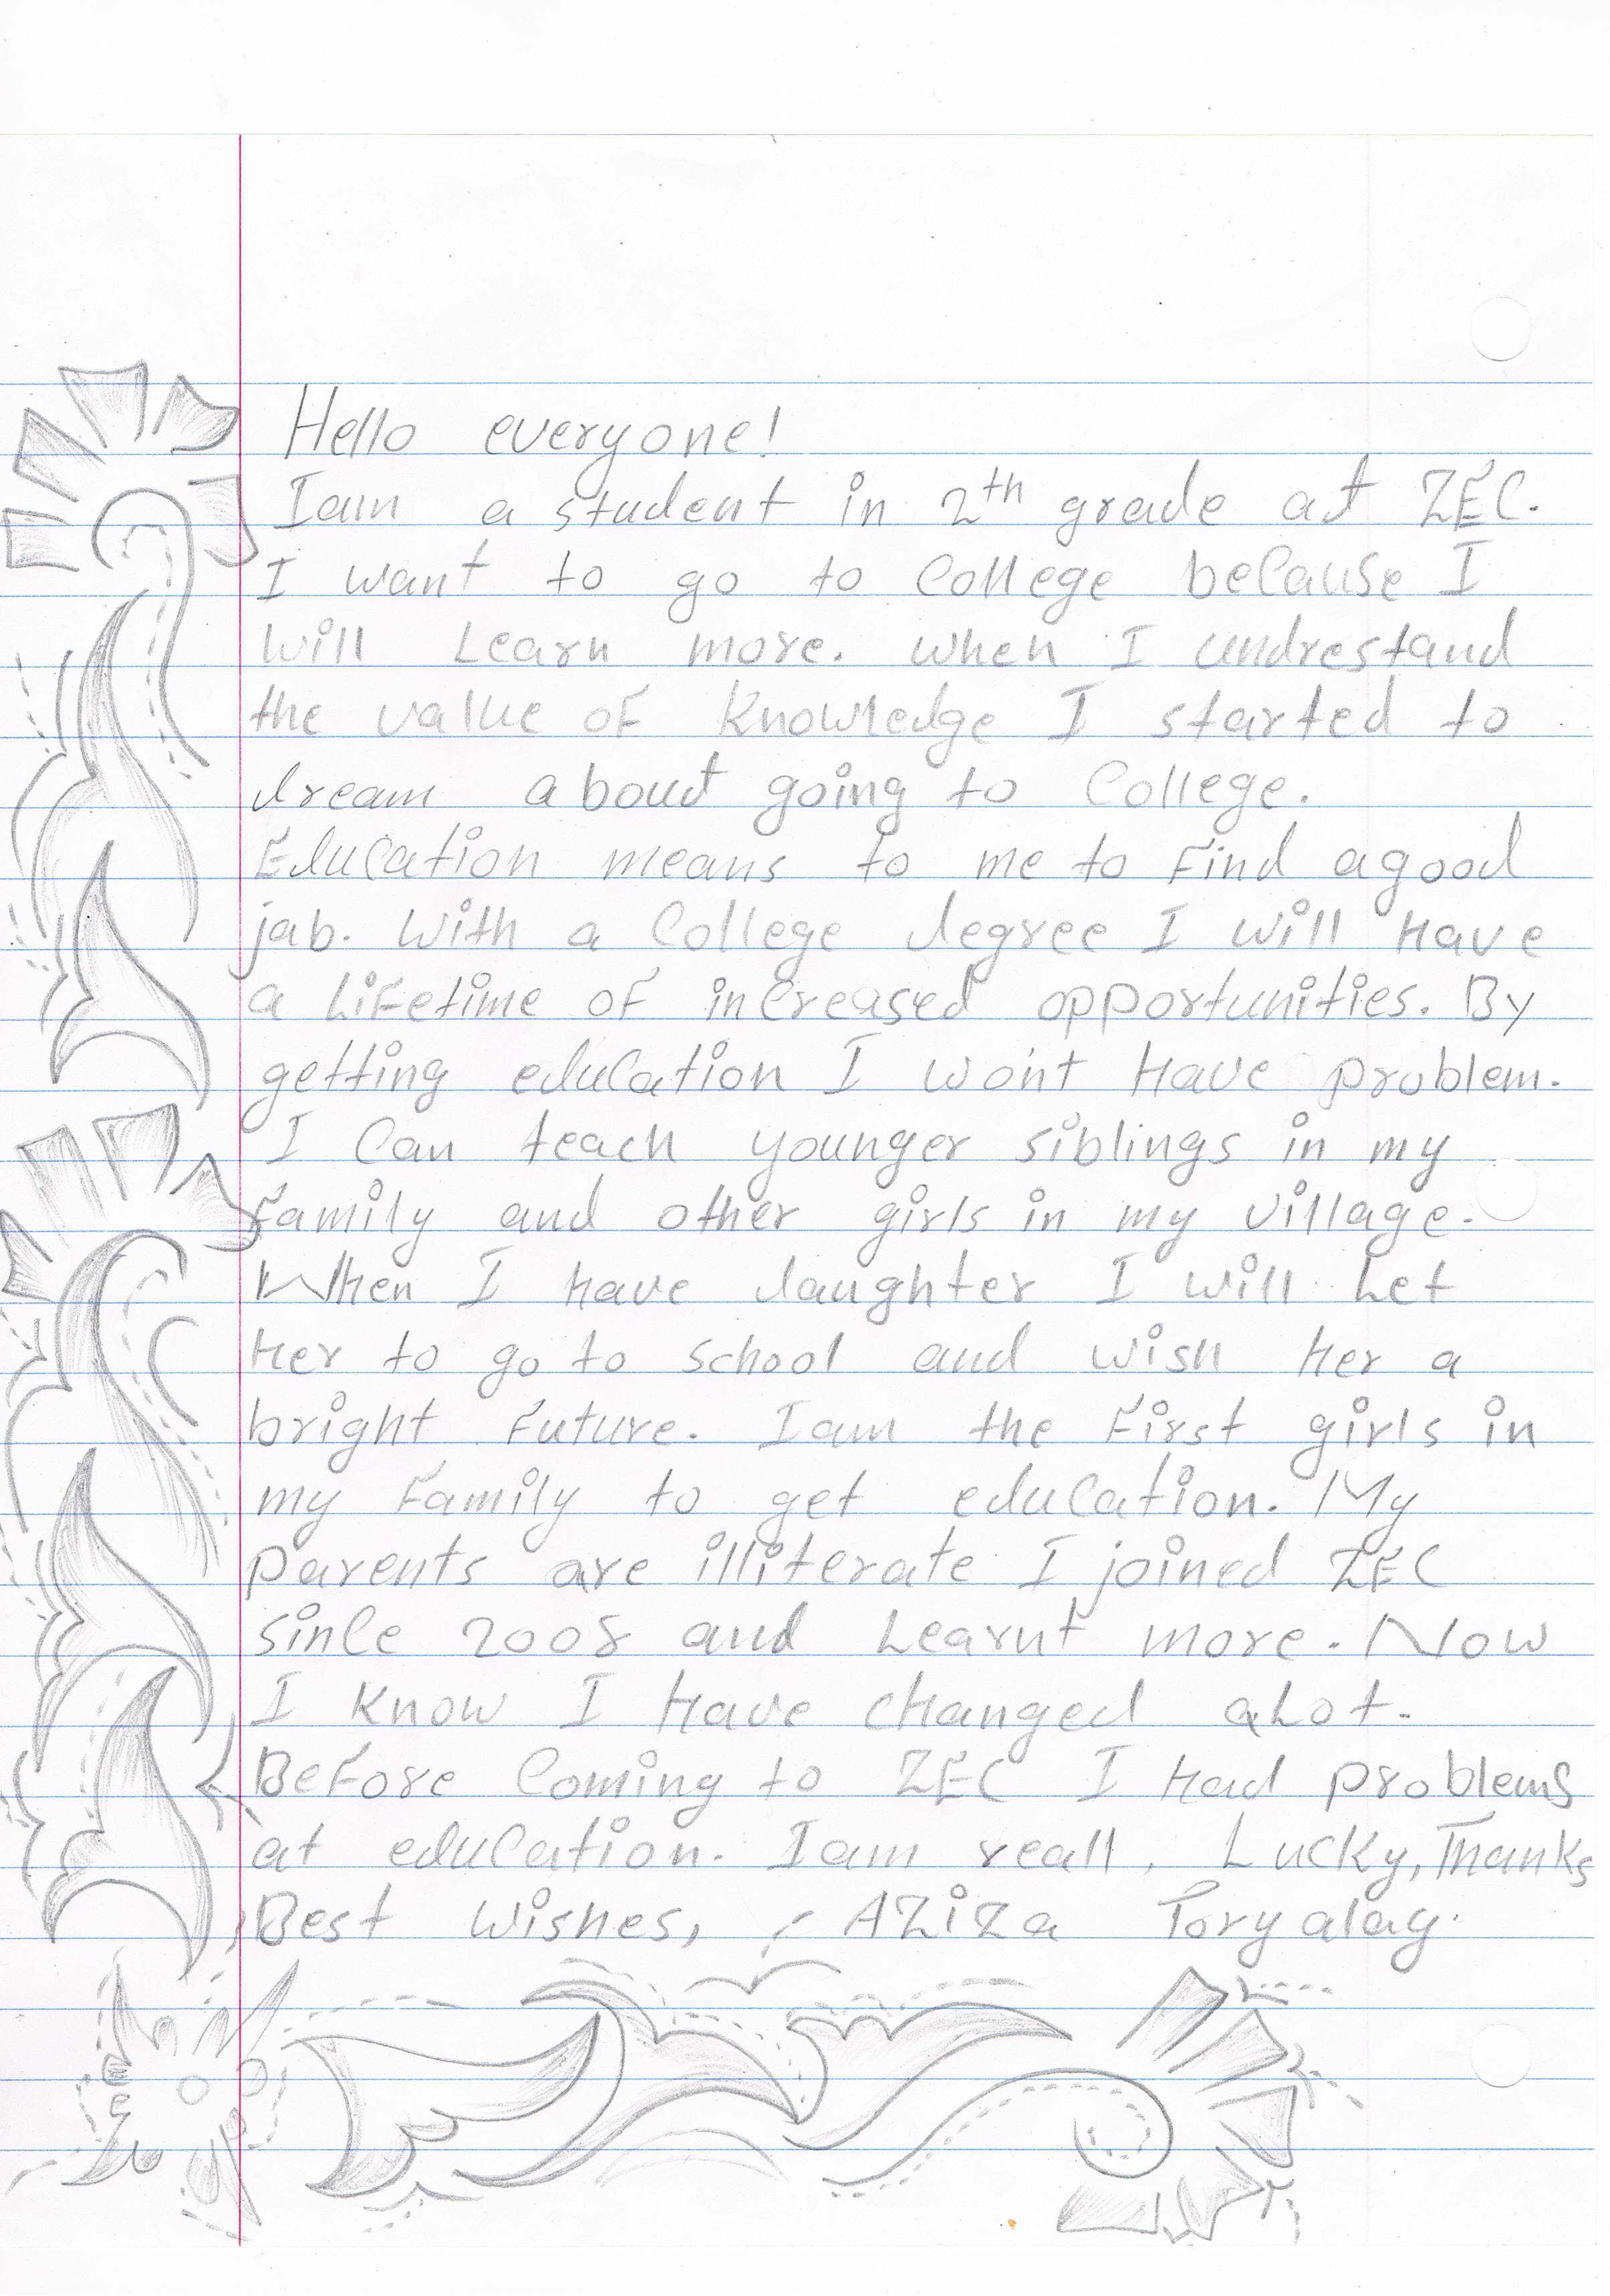 Hello everyone!
Iam a student in 2th grade at ZEC.
I want to go to College because I
will Learn more. when I undrestand
the value of Knowledge I started to
dream about going to College.
Education means to me to Find agood
jab. With a College degree I will Have
a LiFetime oF increased opportunities. By
getting education I wont Have problem.
I Can teach younger siblings in my
Family and other girls in my village.
When I have daughter I will Let
Her to go to school and wish Her a
bright Future. Iam the First girls in
my Family to get education. My
parents are illiterate I joined ZEC
since 2008 and Learnt more. Now
I know I Have changed aLot.
BeFore Coming to ZEC I Had problems
at education. Iam reall. Lucky, Thanks
Best Wishes, AZiZa Toryalay.